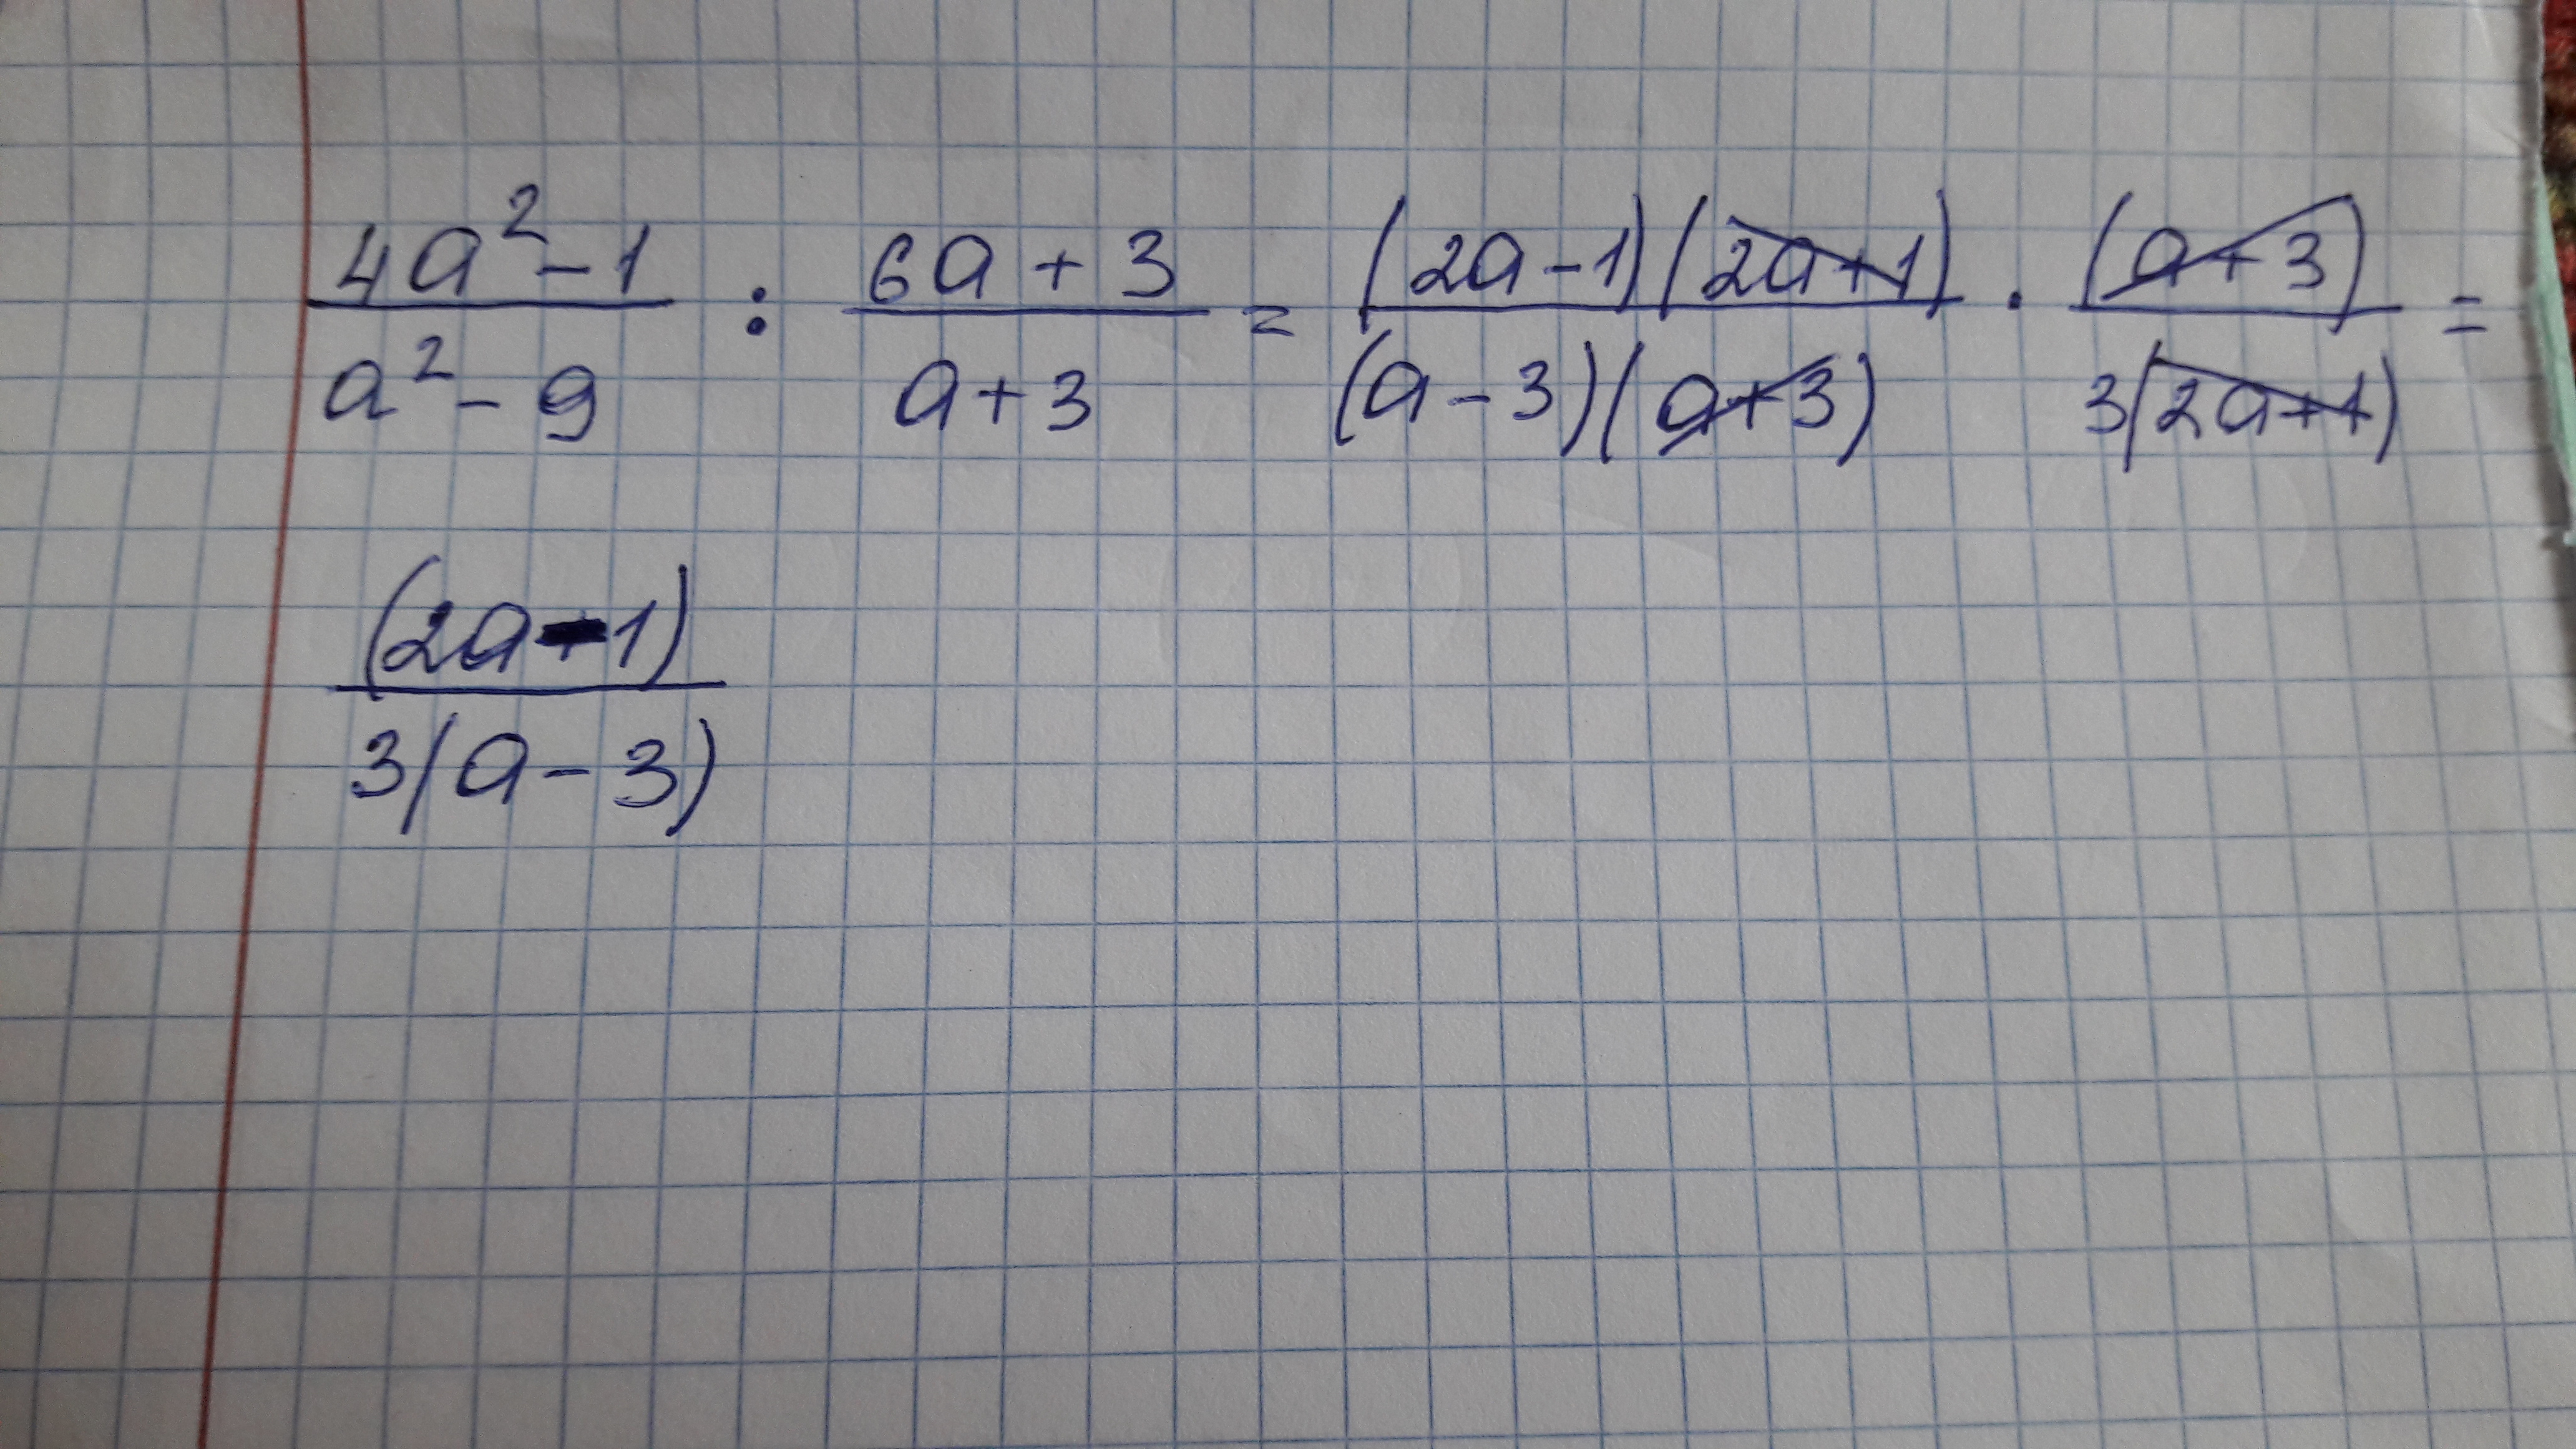 4a² - 1 / a² - 9 : 6a + 3 / a + 3 = (2a - 1)(2a + 1) / (a - 3)(a + 3) · (a + 3) / 3(2a + 1) =
(2a - 1) / 3(a - 3)